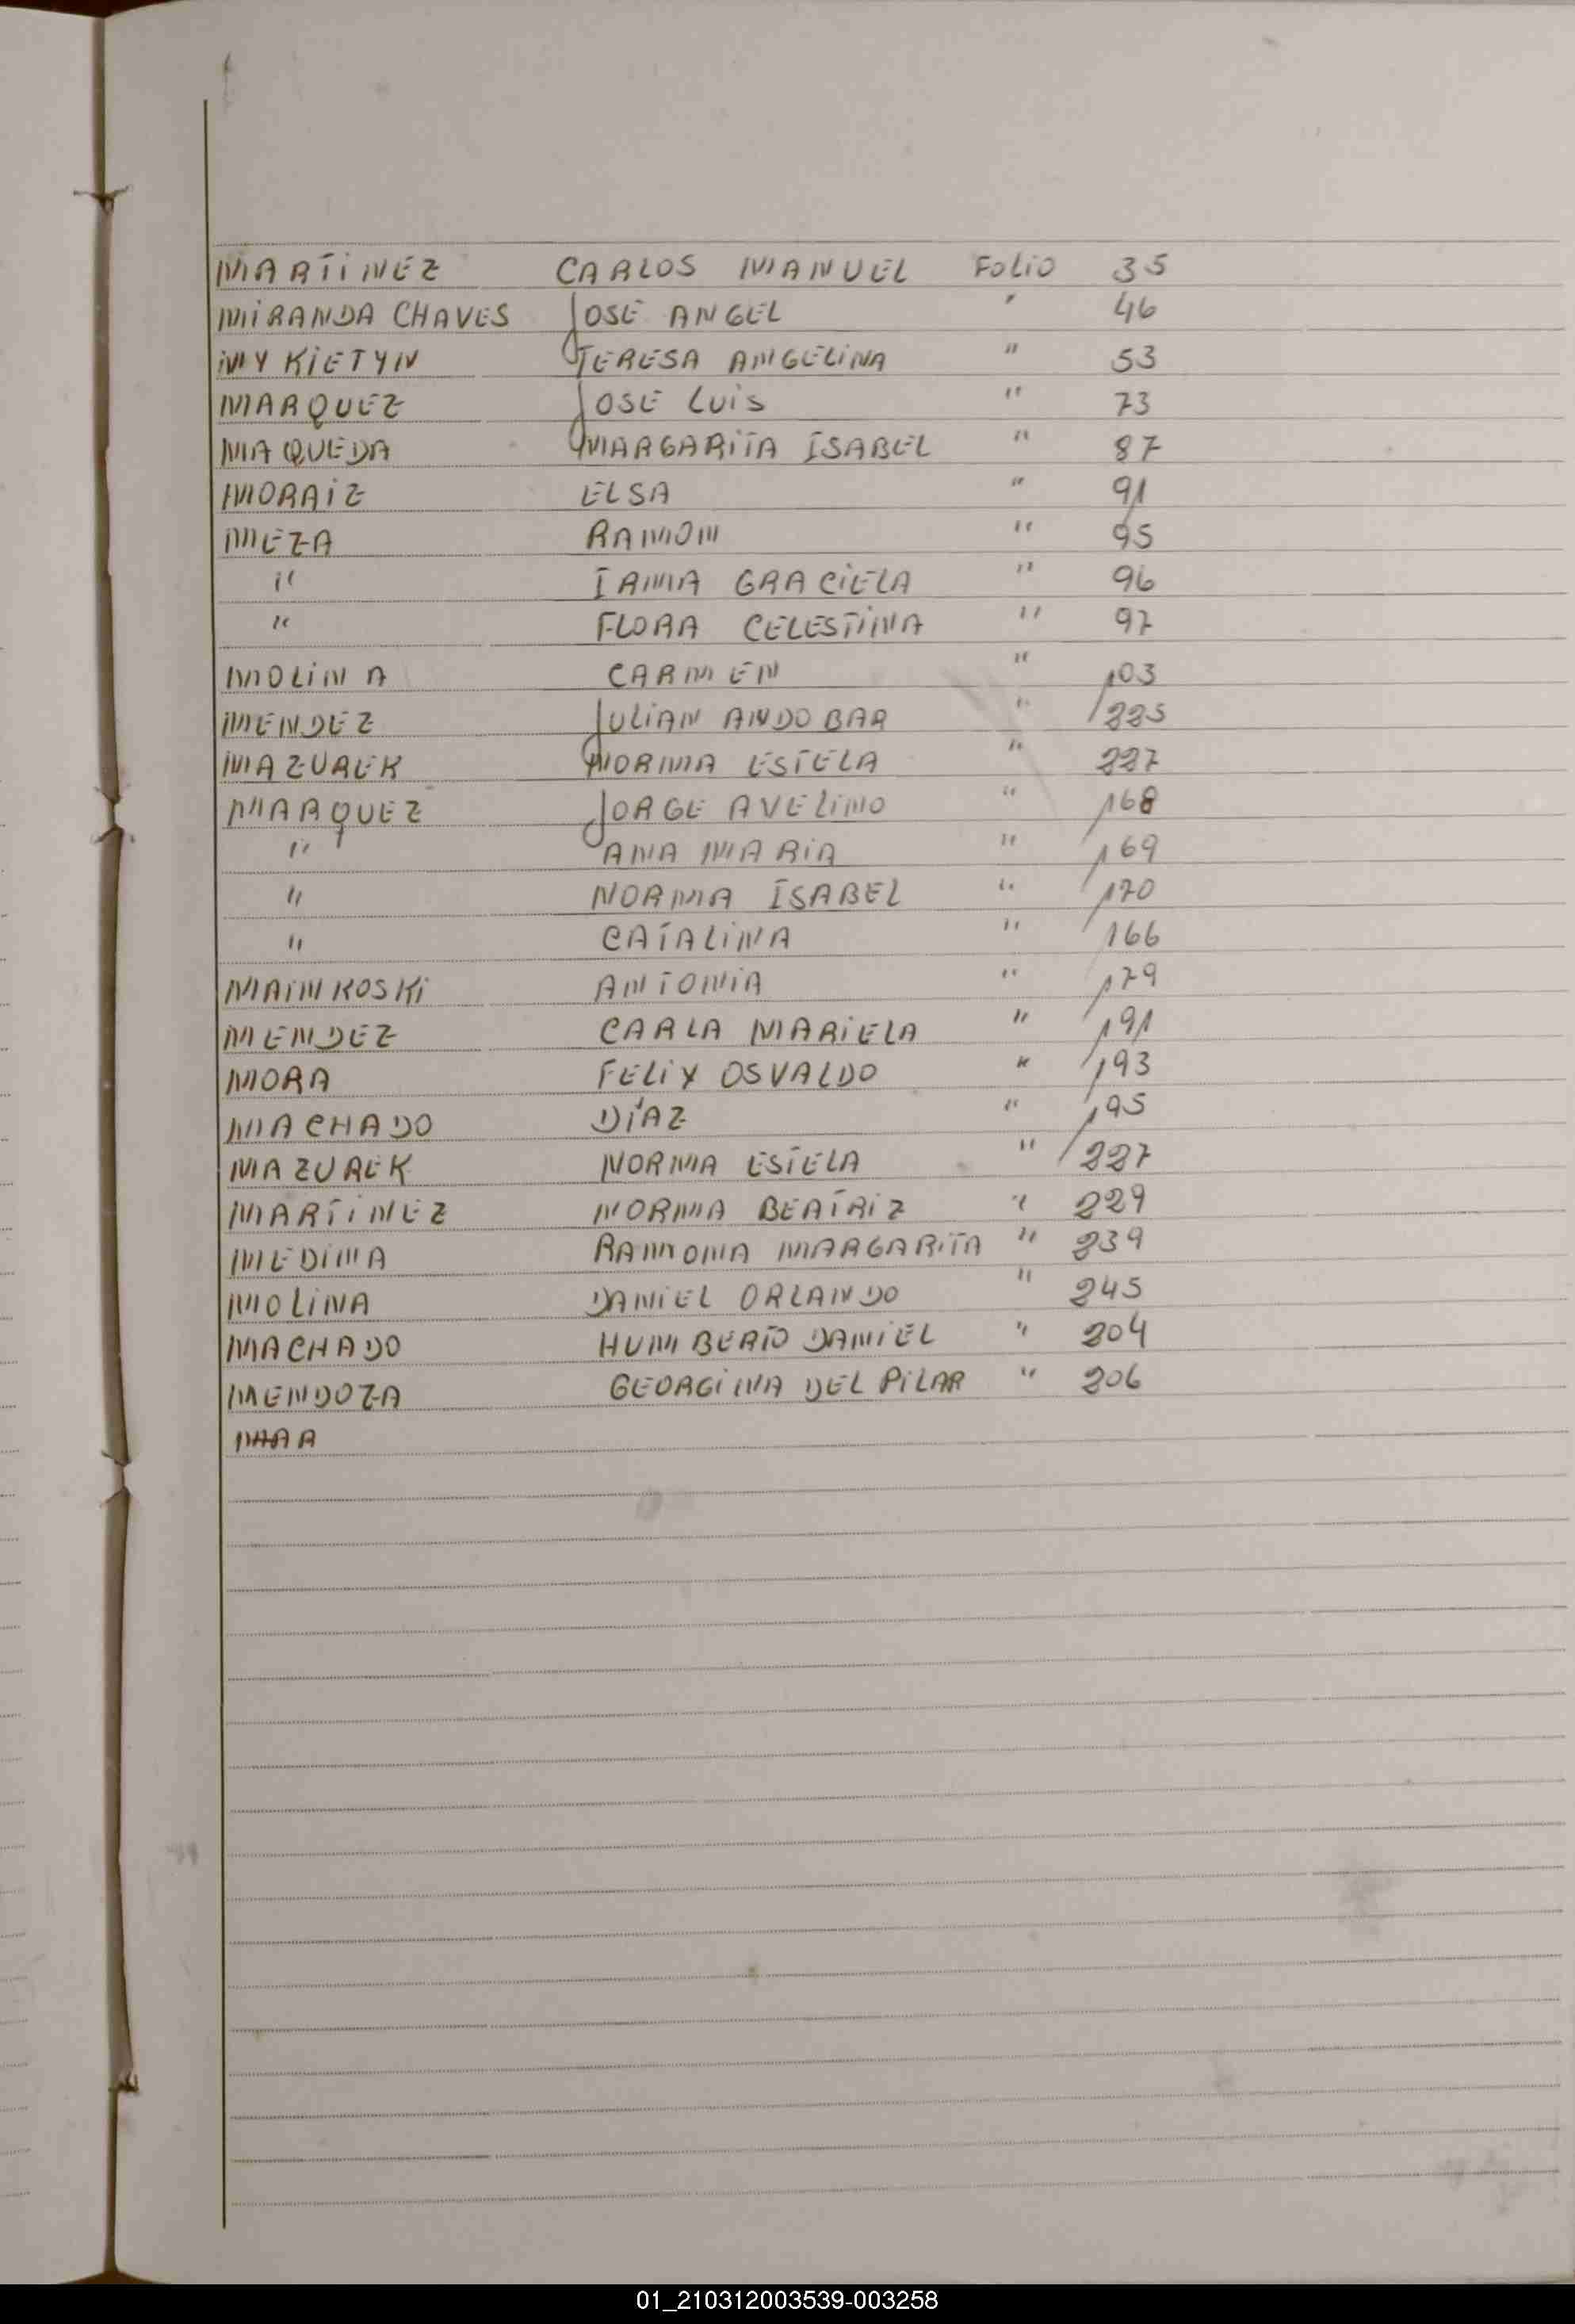 MARTINEZ CARLOS MANUEL Folio 35
MIRANDA CHAVES JOSE ANGEL " 46
MYKIETYN TERESA ANGELINA " 53
MARQUEZ JOSE LUIS " 73
MAQUEDA MARGARITA ISABEL " 87
MORAIZ ELSA " 91
MEZA RAMON " 95
" IRMA GRACIELA " 96
" FLORA CELESTINA " 97
MOLINA CARMEN " 103
MENDEZ JULIAN ANDOBAR " 225
MAZUREK NORMA ESTELA " 227
MARQUEZ JORGE AVELINO " 168
" ANA MARIA " 169
" NORMA ISABEL " 170
" CATALINA " 166
MAINKOSKI ANTONIA " 179
MENDEZ CARLA MARIELA " 191
MORA FELIX OSVALDO " 193
MACHADO DÍAZ " 195
MAZUREK NORMA ESTELA " 227
MARTINEZ NORMA BEATRIZ " 229
MEDINA RAMONA MARGARITA " 239
MOLINA DANIEL ORLANDO " 245
MACHADO HUMBERTO DANIEL " 204
MENDOZA GEORGINA DEL PILAR " 206
01_210312003539-003258